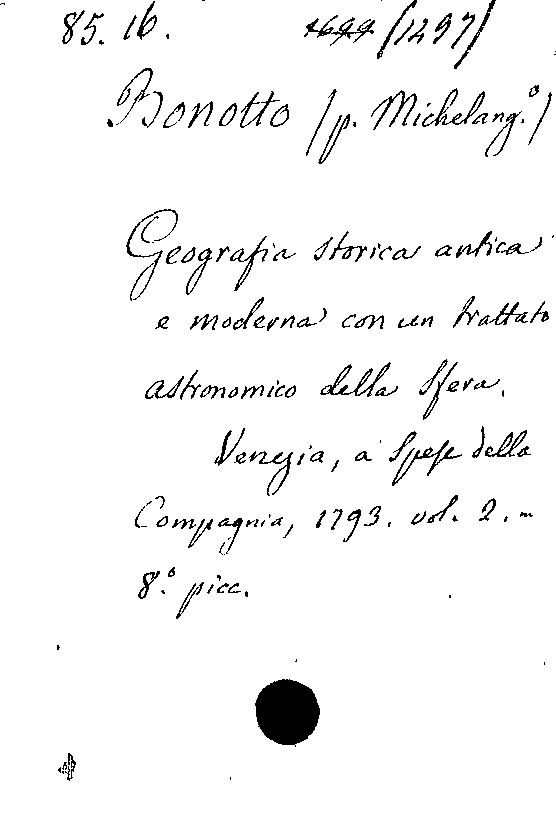 85. 16. 1699 (1297)
Bonotto (p. Michelang.º)
Geografia storica antica
e moderna con un trattato
astronomico della Sfera.
Venezia, a Spese della
Compagnia, 1793. vol. 2. in
8.º picc.